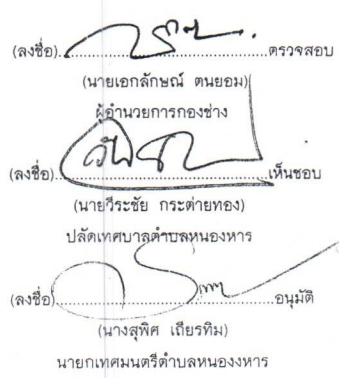 (ลงชื่อ)..............................ตรวจสอบ
(นายเอกลักษณ์ ตนยอม)
ผู้อำนวยการกองช่าง
(ลงชื่อ)..............................เห็นชอบ
(นายวีระชัย กระต่ายทอง)
ปลัดเทศบาลตำบลหนองหาร
(ลงชื่อ)..............................อนุมัติ
(นางสุพิศ เถียรทิม)
นายกเทศมนตรีตำบลหนองงหาร